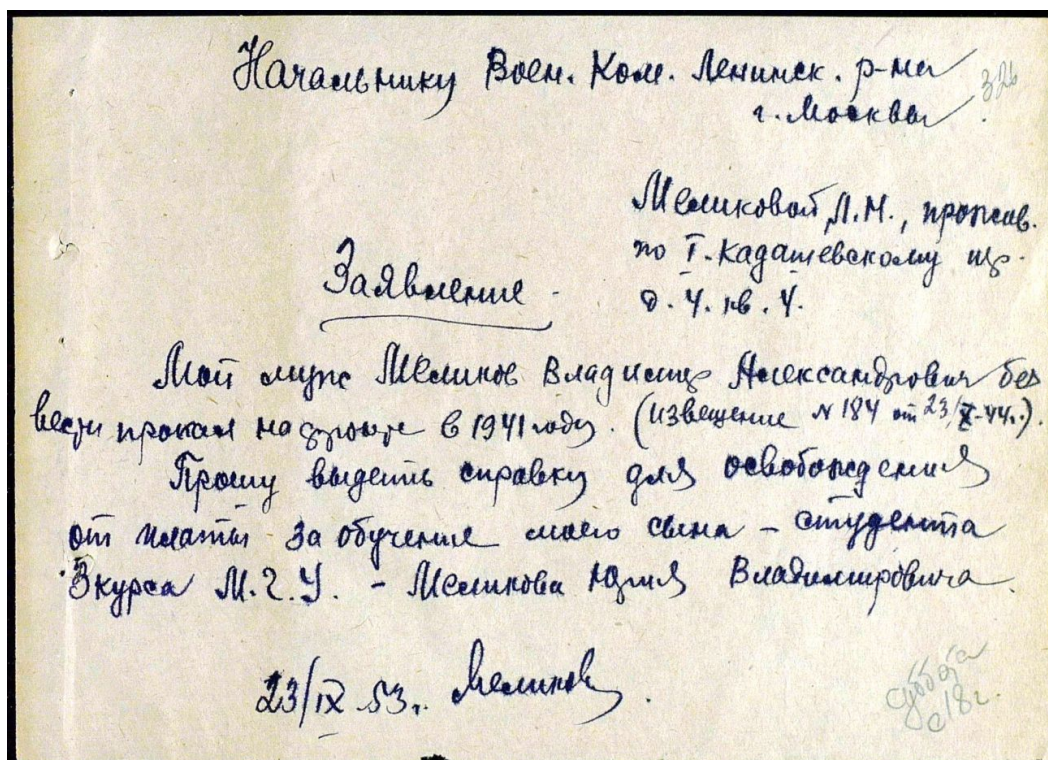 Начальнику Воен. Ком. Ленинск. р-на
г. Москвы.
326
Меликовой Л.М., прожив.
по I. Кадашевскому пер.
д. 4. кв. 4.
Заявление.
Мой муж Меликов Владимир Александрович без
вести пропал на фронте в 1941 году. (извещение № 184 от 23/X-44г.).
Прошу выдать справку для освобождения
от платы за обучение моего сына – студента
3 курса М.Г.У. – Меликова Юрия Владимировича.
23/IX 53г. Меликова.
суббота
с 18 г.